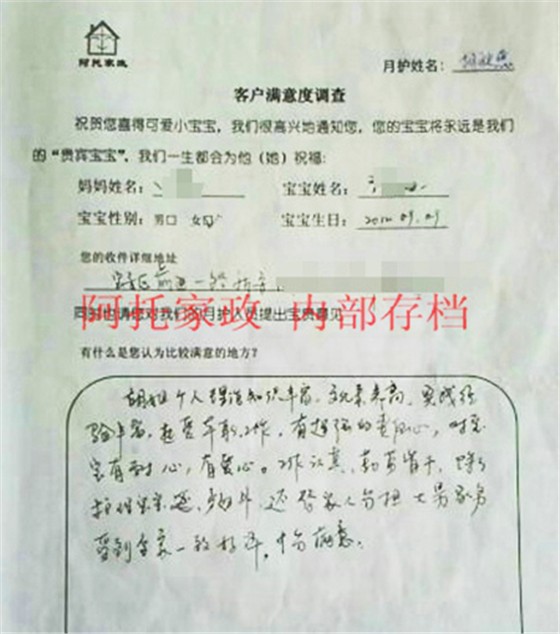 阿托家政
月护姓名：
客户满意度调查
祝贺您喜得可爱小宝宝，我们很高兴地通知您，您的宝宝将永远是我们
的“贵宾宝宝”，我们一生都会为他（她）祝福：
妈妈姓名： 宝宝姓名：
宝宝性别： 男口 女 宝宝生日： 2010.09.09
您的收件详细地址
阿托家政 内部存档
同时也请您对我们的月护人员提出宝贵意见
有什么是您认为比较满意的地方？
胡姐个人理论知识丰富，文化素养高，实践经
验丰富，热爱本职工作，有超强的责任心，对宝
宝有耐心，有爱心。工作认真，勤劳肯干，除了
护理宝宝 外，还替家人分担 家务
受到全家一致好评，十分满意。